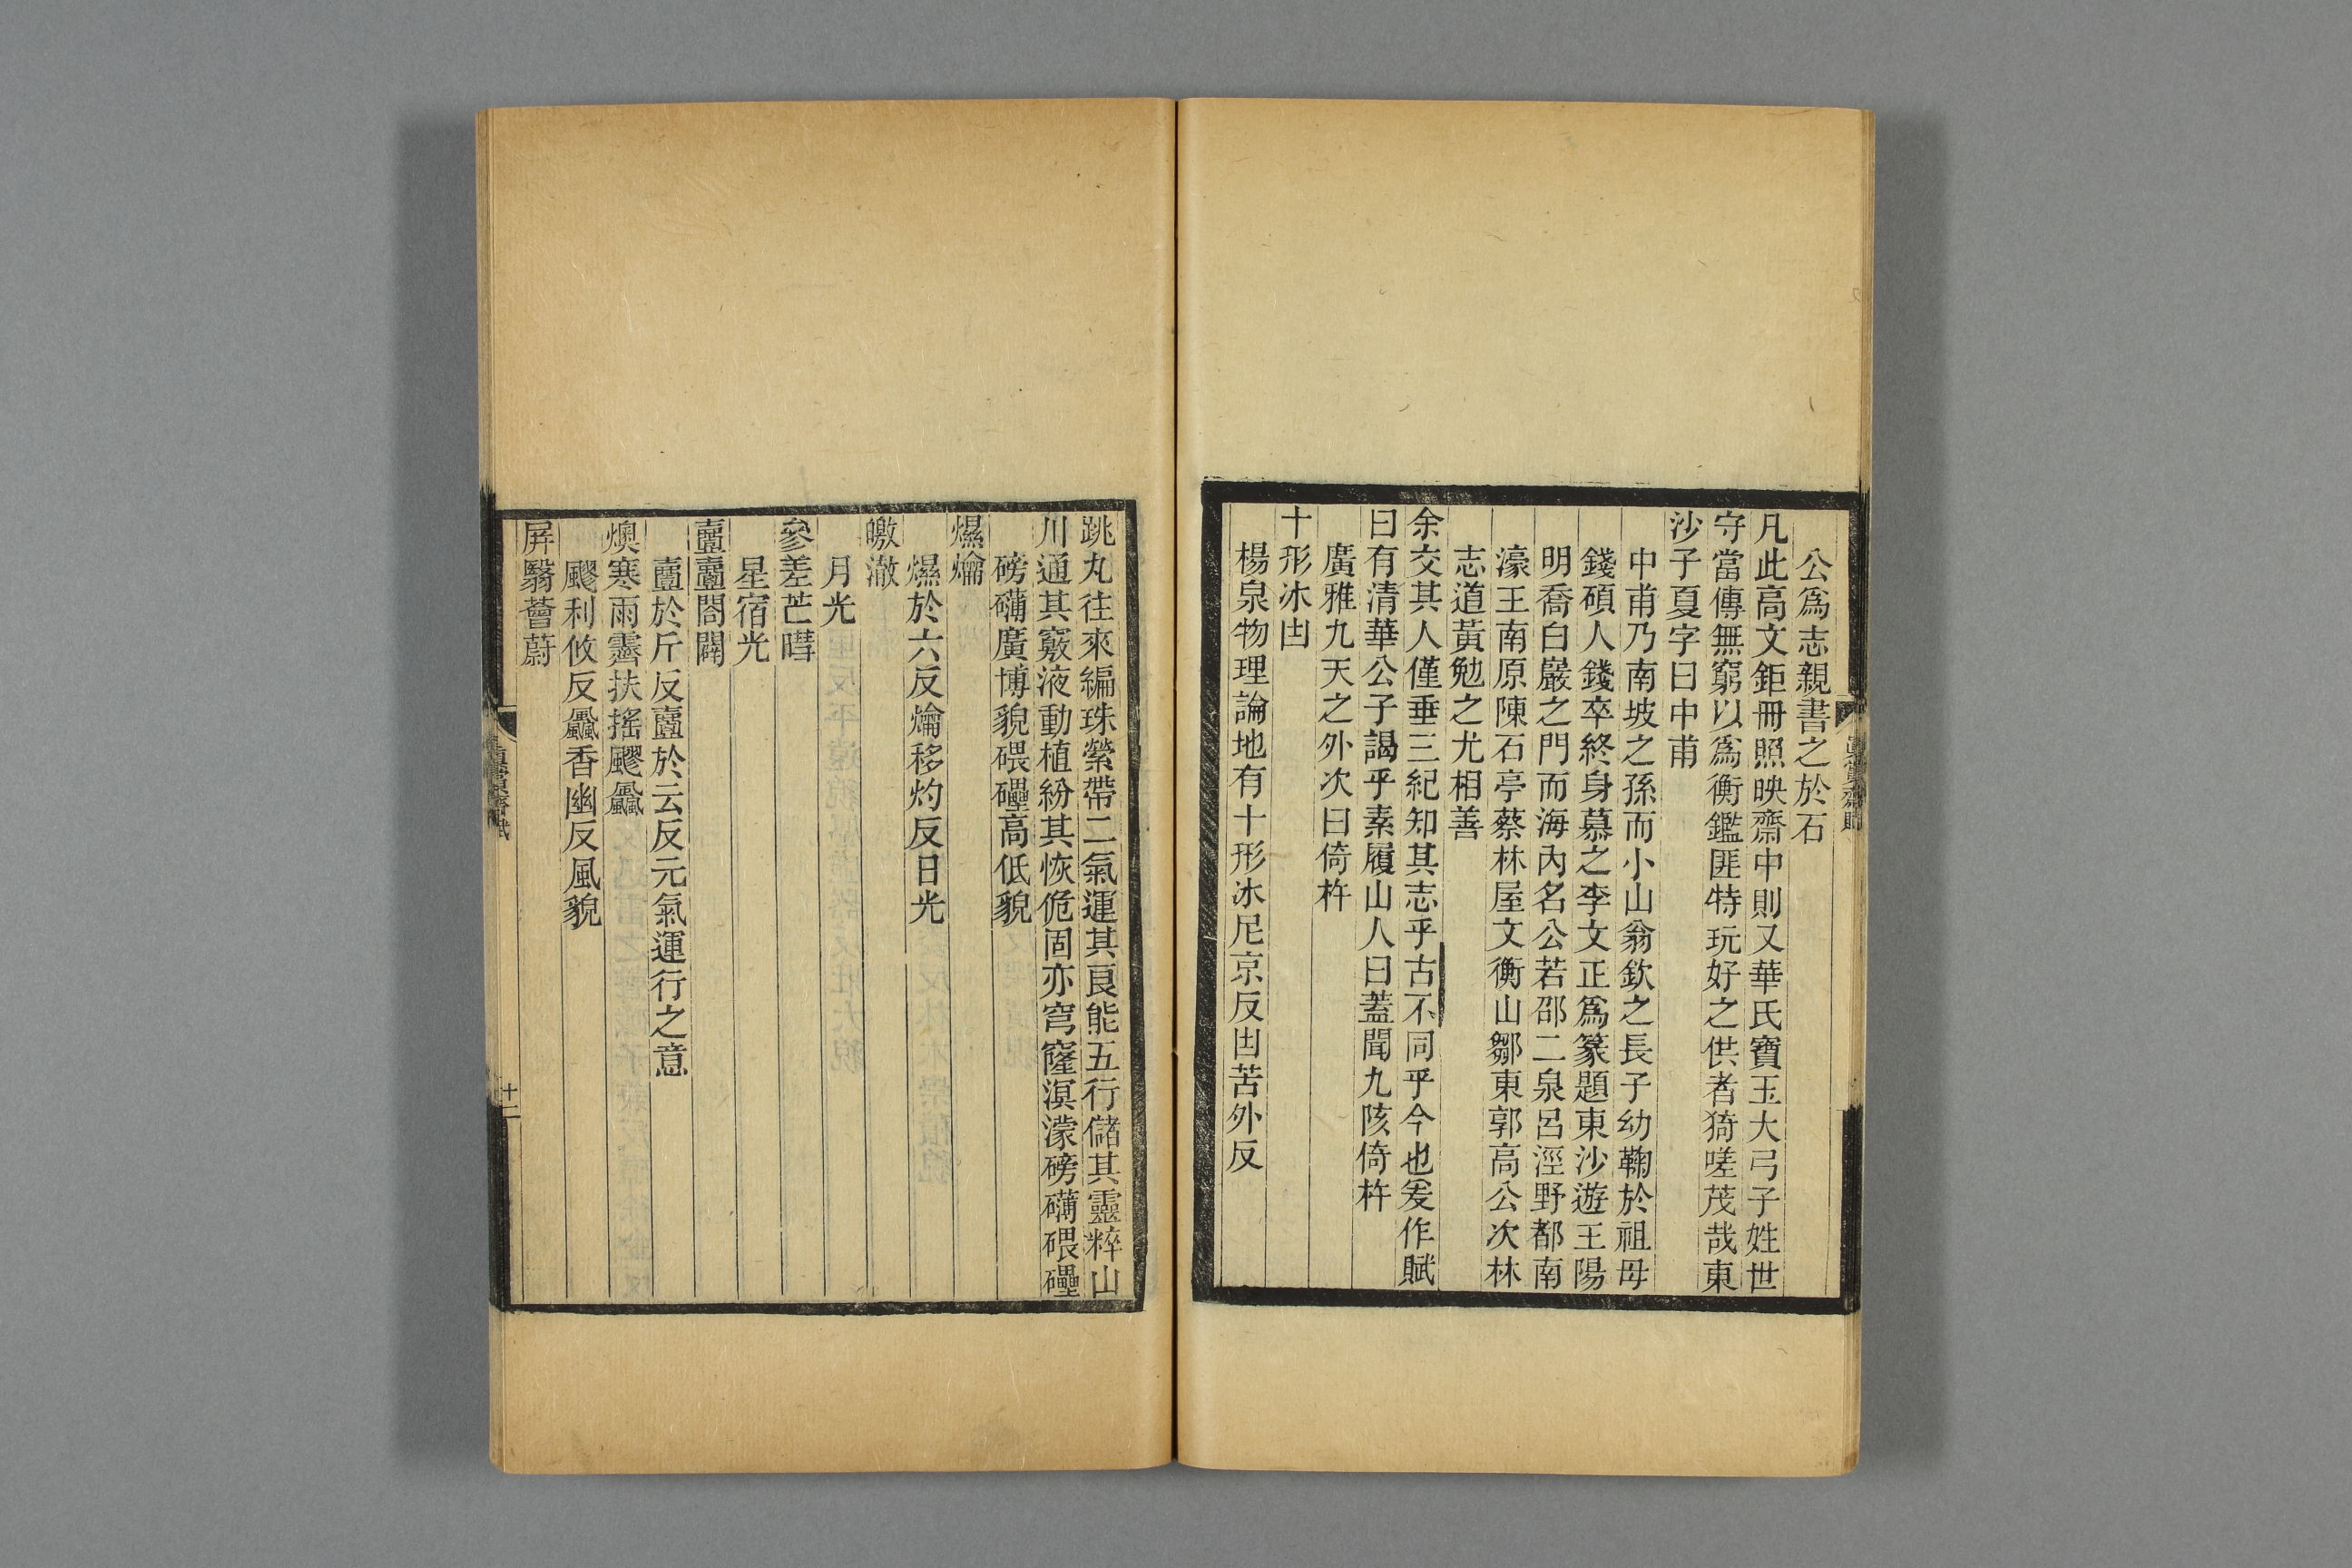 公爲志親書之於石
凡此高文鉅冊照映齋中則又華氏寶玉大弓子姓世
守當傳無窮以爲衡鑑匪特玩好之供者猗嗟茂哉東
沙子夏字曰中甫
中甫乃南坡之孫而小山翁欽之長子幼鞠於祖母
錢碩人錢卒終身慕之李文正爲篆題東沙遊王陽
明喬白巖之門而海內名公若邵二泉呂涇野都南
濠王南原陳石亭蔡林屋文衡山鄒東郭高公次林
志道黃勉之尤相善
余交其人僅垂三紀知其志乎古不同乎今也爰作賦
曰有清華公子謁乎素履山人曰蓋聞九陔倚杵
廣雅九天之外次曰倚杵
十形冰凷
楊泉物理論地有十形冰尼京反凷苦外反
跳丸往來編珠縈帶二氣運其良能五行儲其靈粹山
川通其竅液動植紛其恢佹固亦穹窿溟濛磅礴碨礧
磅礴廣博貌碨礧高低貌
爑爚
爑於六反爚移灼反日光
皦澈
月光
參差芒暳
星宿光
壼壼閤闢
壼於斤反壼於云反元氣運行之意
燠寒雨霽扶搖飂飍
飂利攸反飍香幽反風貌
屏翳薈蔚
眞賞齋賦
十二